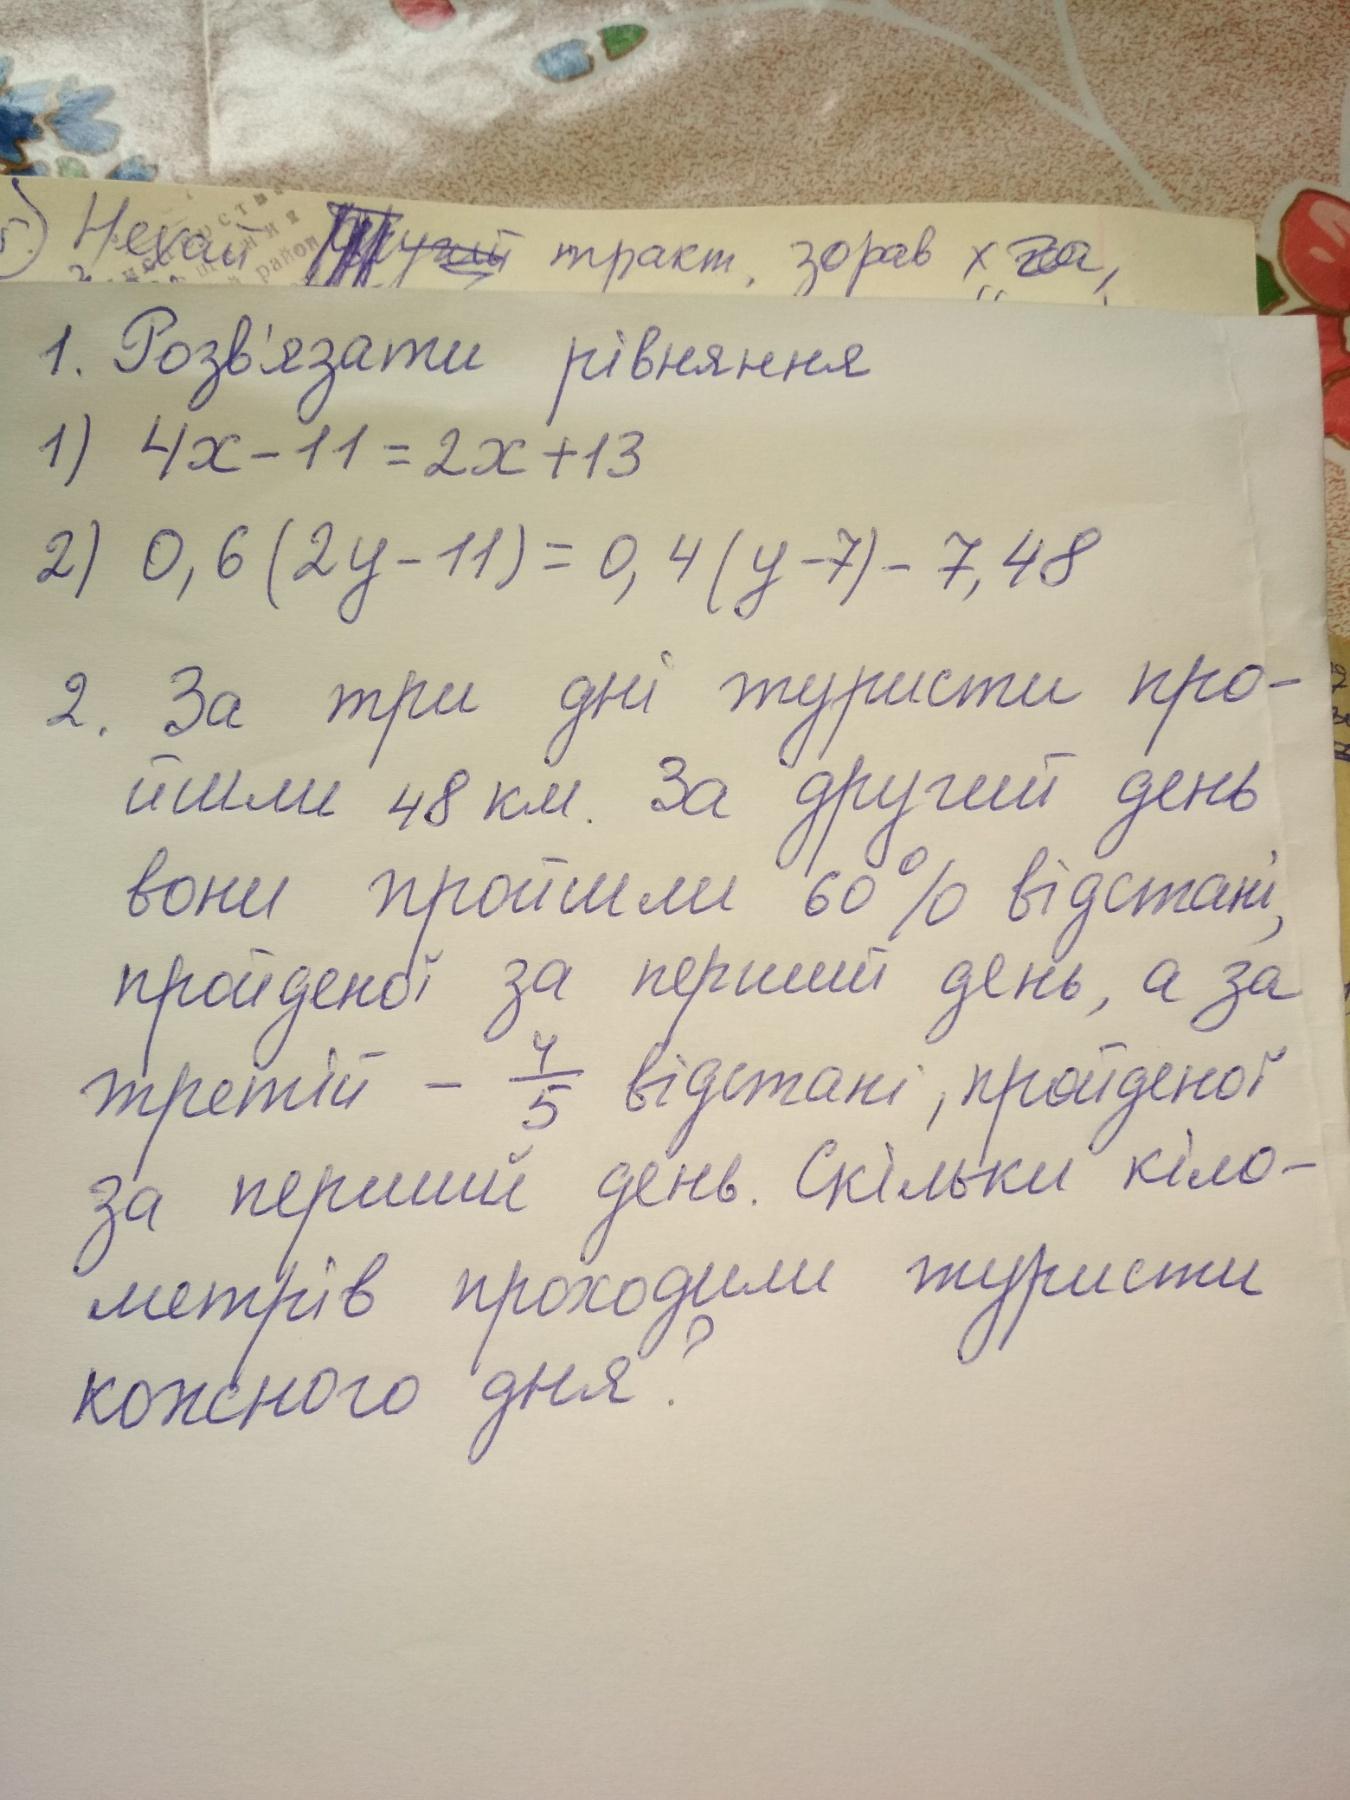 5.) Нехай тракт. зорав х га,
1. Розв'язати рівняння
1) 4х-11=2х+13
2) 0,6(2у-11)=0,4(у-7)-7,48
2. За три дні туристи про-
йшли 48 км. За другий день
вони пройшли 60% відстані,
пройденої за перший день, а за
третій - 4/5 відстані, пройденої
за перший день. Скільки кіло-
метрів проходили туристи
кожного дня?